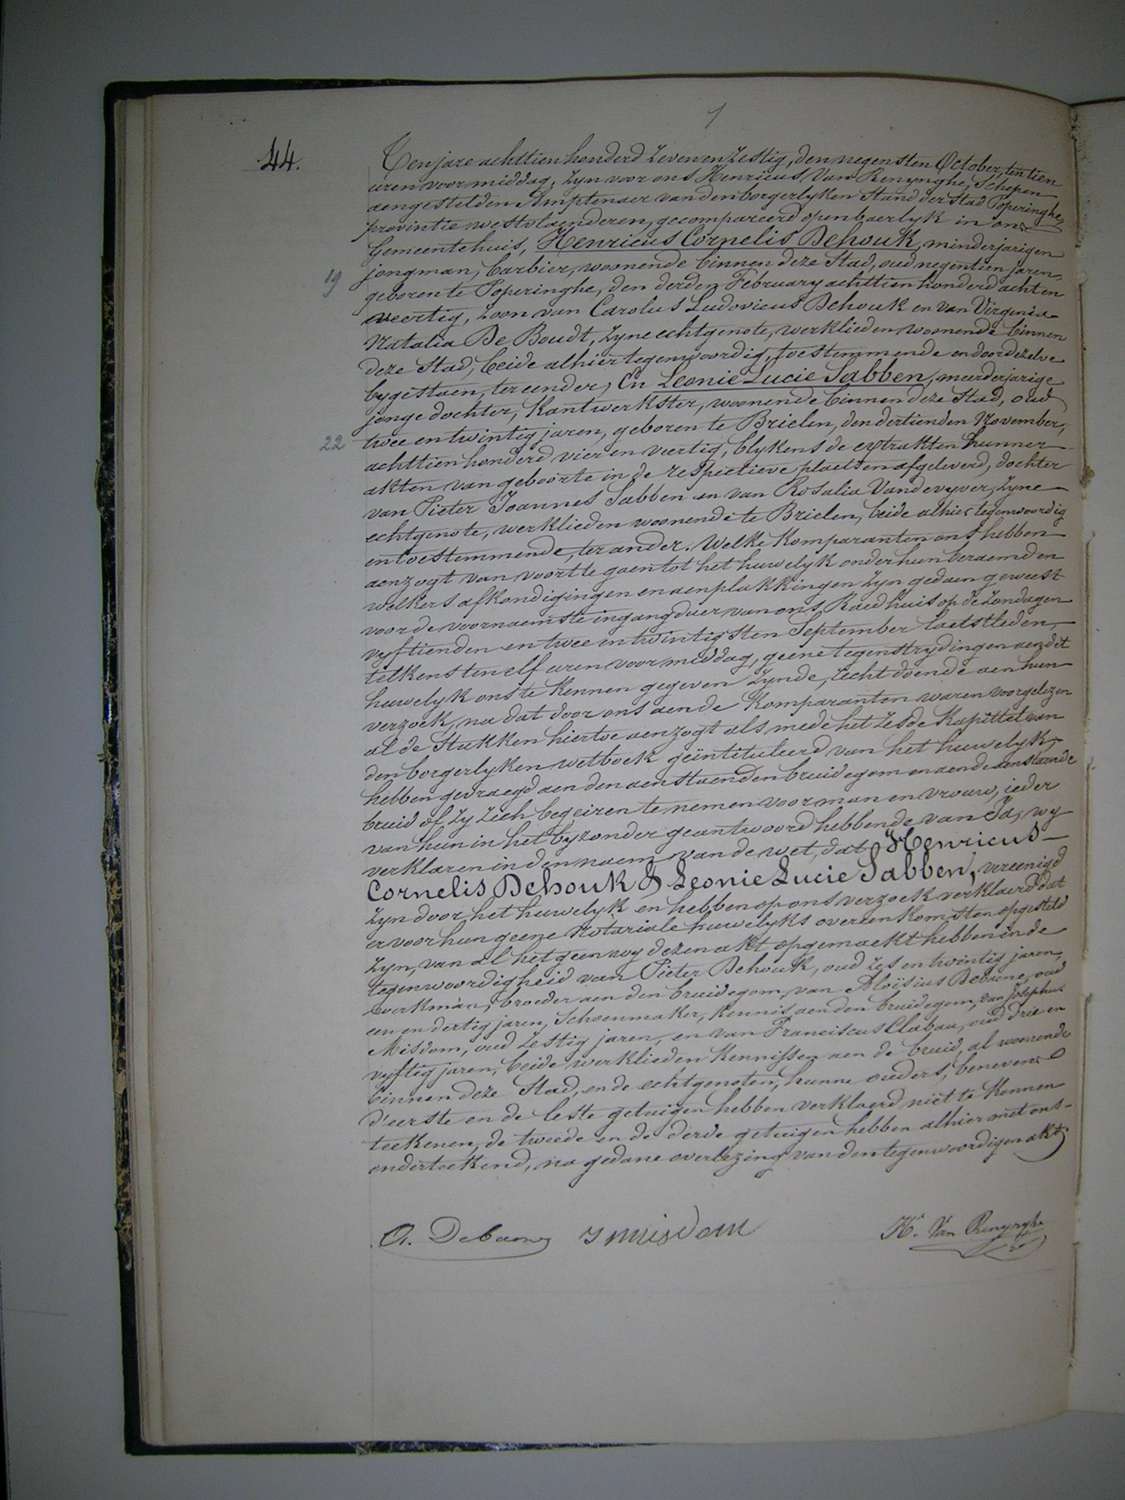 44.
Ten jare achttien honderd zeven en zestig, den negensten October, ten tien
uren voormiddag, zyn voor ons Henricus Van Renynghe, Schepen
aengestelden Amptenaer van den borgerlyken Stand der Stad Poperinghe,
provintie westvlaenderen, gecompareerd openbaerlyk in ons
Gemeentehuis, Henricus Cornelis Dehouk, minderjarigen
jongman, barbier, woonende binnen deze Stad, oud negentien jaren,
19
geboren te Poperinghe, den derden February achttien honderd acht en
veertig, zoon van Carolus Ludovicus Dehouk en van Virginia
Natalia De Boudt, zyne echtgenote, werklieden woonende binnen
deze Stad, beide alhier tegenwoordig, toestemmende en door dezelve
bygestaen, ter eender; En Leonie Lucie Sabben, meerderjarige
jonge dochter, kantwerkster, woonende binnen deze Stad, oud
22
twee en twintig jaren, geboren te Brielen, den dertienden November,
achttien honderd vier en veertig, blykens de extrakten hunner
akten van geboorte in de respectieve plaetsen afgeleverd, dochter
van Pieter Joannes Sabben en van Rosalia Vandevyver, zyne
echtgenote, werklieden woonende te Brielen, beide alhier tegenwoordig
en toestemmende, ter ander. Welke komparanten ons hebben
aenzogt van voort te gaen tot het huwelyk onder hun beraemd en
welkers afkondigingen en aenplakkingen zyn gedaen geweest
voor de voornaemste ingangduer van ons Raedhuis op de Zondagen
vyftienden en twee en twintigsten September laetstleden,
telkens ten elf uren voormiddag, geene tegenstrydingen aen dit
huwelyk ons te kennen gegeven zynde, recht doende aen hun
verzoek, na dat door ons aen de Komparanten waren voorgelezen
al de Stukken hiertoe aenzogt als mede het zesde Kapittel van
den borgerlyken wetboek geïntituleerd van het huwelyk,
hebben gevraegd aen den aenstaenden bruidegom en aen de aenstaende
bruid of zy zich begeiren te nemen voor man en vrouw, ieder
van hun in het byzonder geantwoord hebbende van Ja, wy
verklaren in den naem van de wet, dat Henricus
Cornelis Dehouk & Leonie Lucie Sabben, vereenigd
zyn door het huwelyk en hebben op ons verzoek verklaerd dat
er voor hun geene Notariale huwelyks overeenkomsten opgesteld
zyn, van al het geen wy dezen akt opgemaekt hebben in de
tegenwoordigheid van Pieter Dehouk, oud zes en twintig jaren,
werkman, broeder aen den bruidegom, van Aloïsius Debaene, oud
een en dertig jaren, Schoenmaker, kennis aen den bruidegom, van Josephus
Misdom, oud zestig jaren, en van Franciscus Clabau, oud drie en
vyftig jaren, beide werklieden kennissen aen de bruid, al woonende
binnen deze Stad, en de echtgenoten, hunne ouders, benevens
d'eerste en de leste getuigen hebben verklaerd niet te kennen
teekenen, de tweede en de derde getuigen hebben alhier met ons
onderteekend, na gedane overlezing van den tegenwoordigen akt.
A. Debaene J misdom Hri Van Renynghe